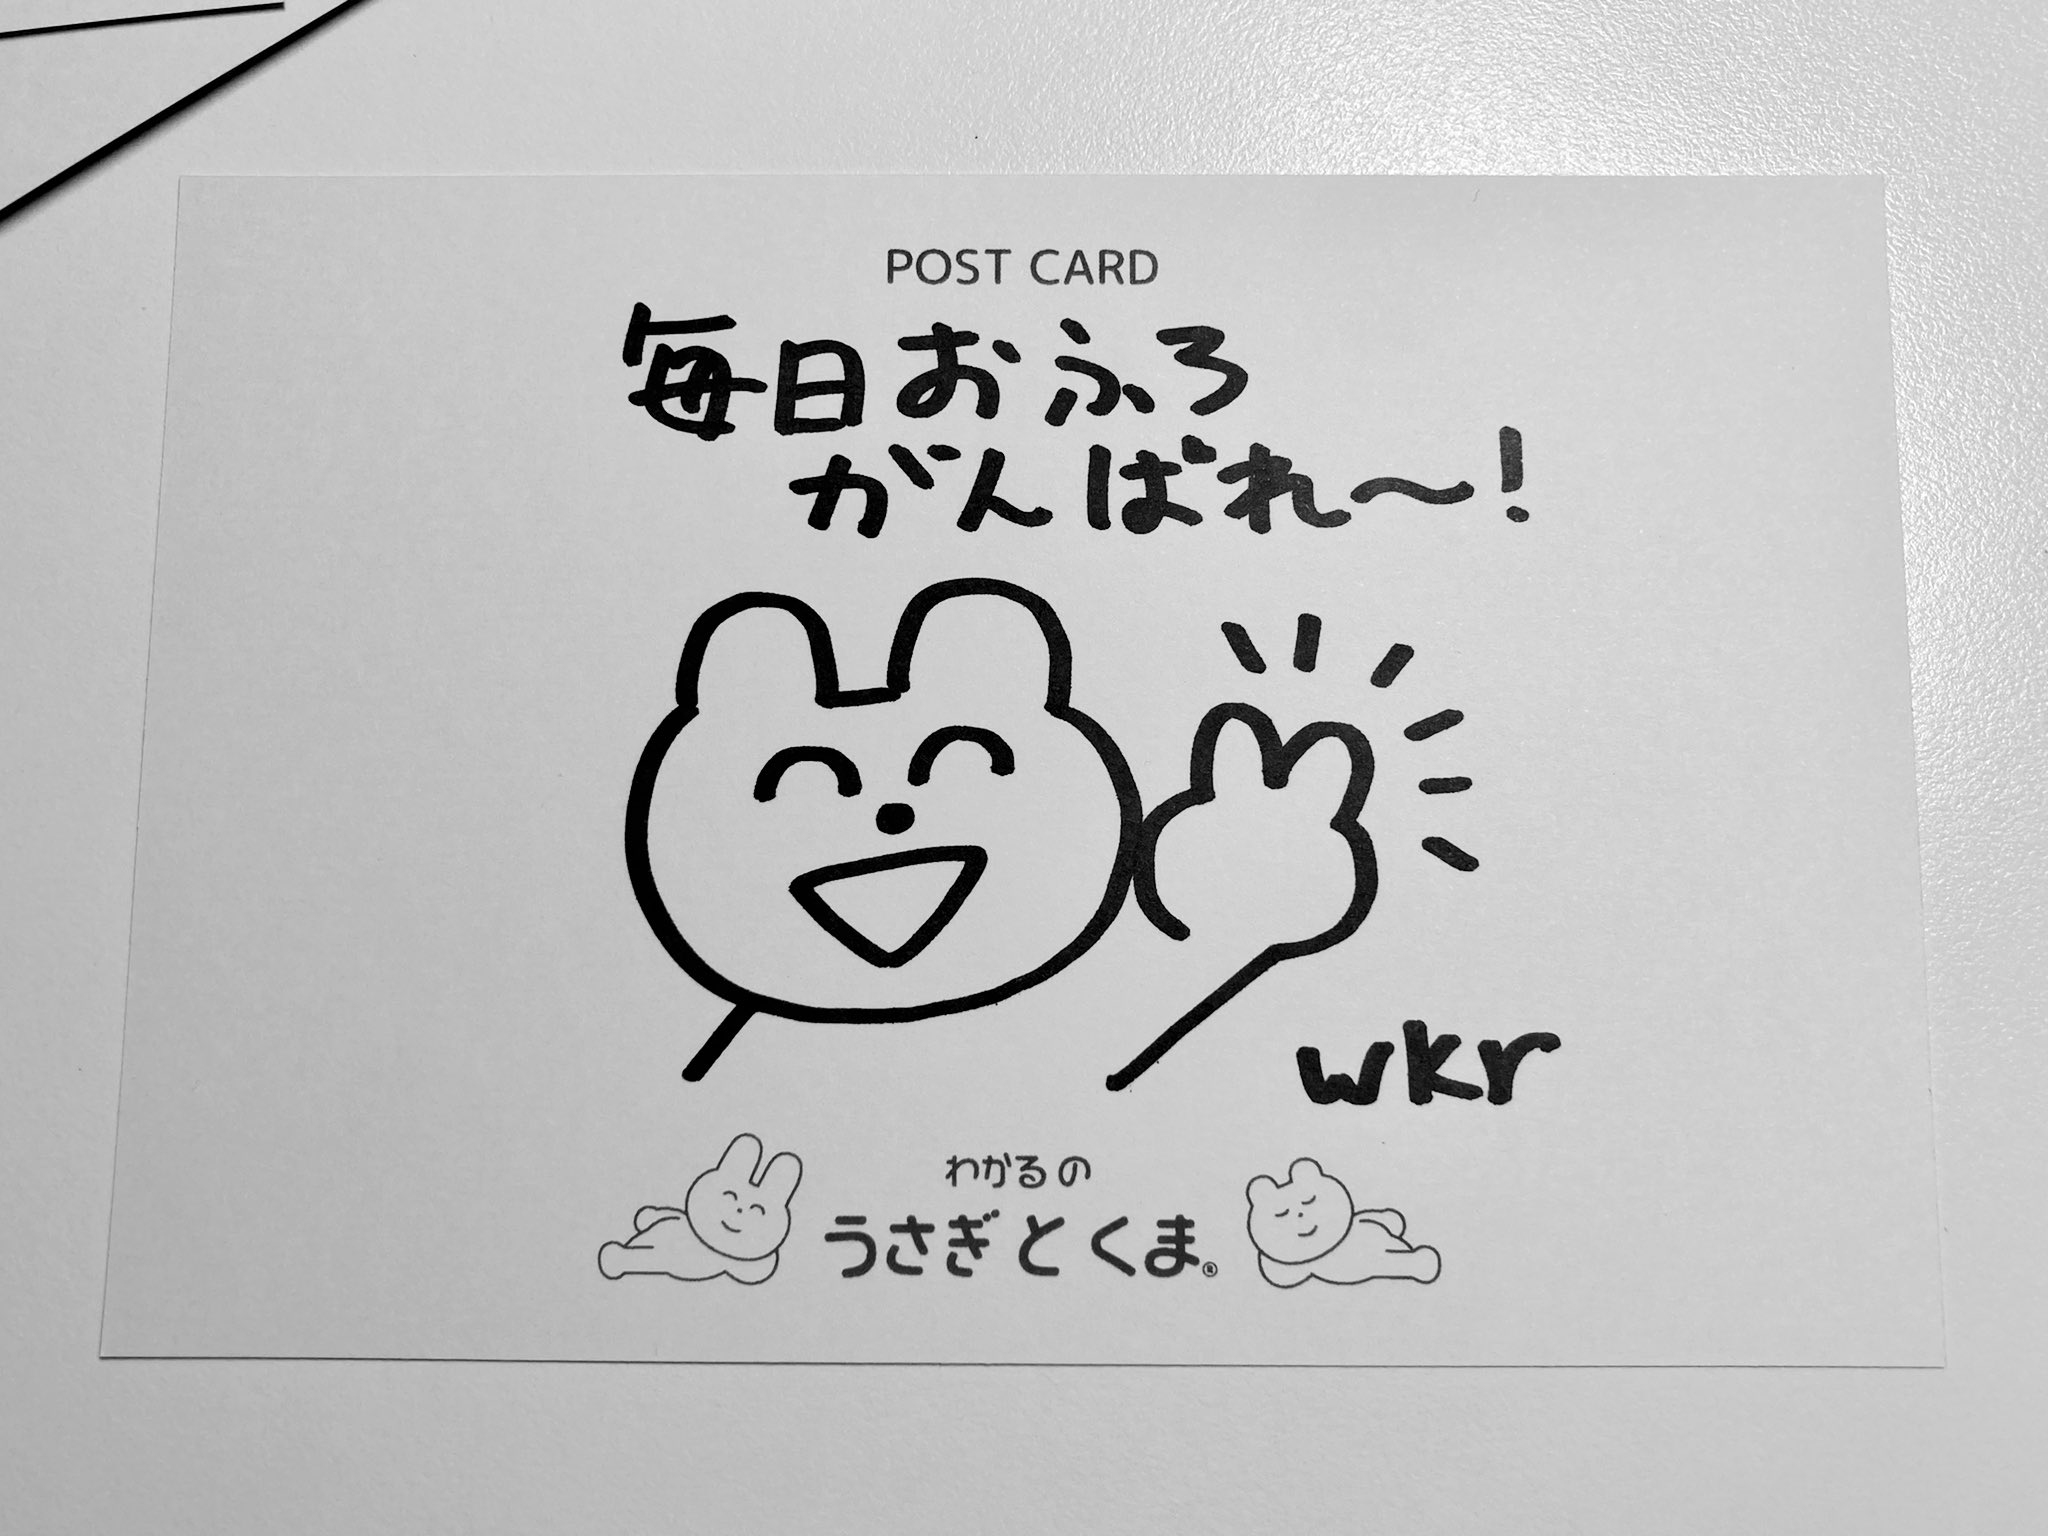 POST CARD
毎日おふろ
がんばれ〜!
wkr
わかるの
うさぎとくま®